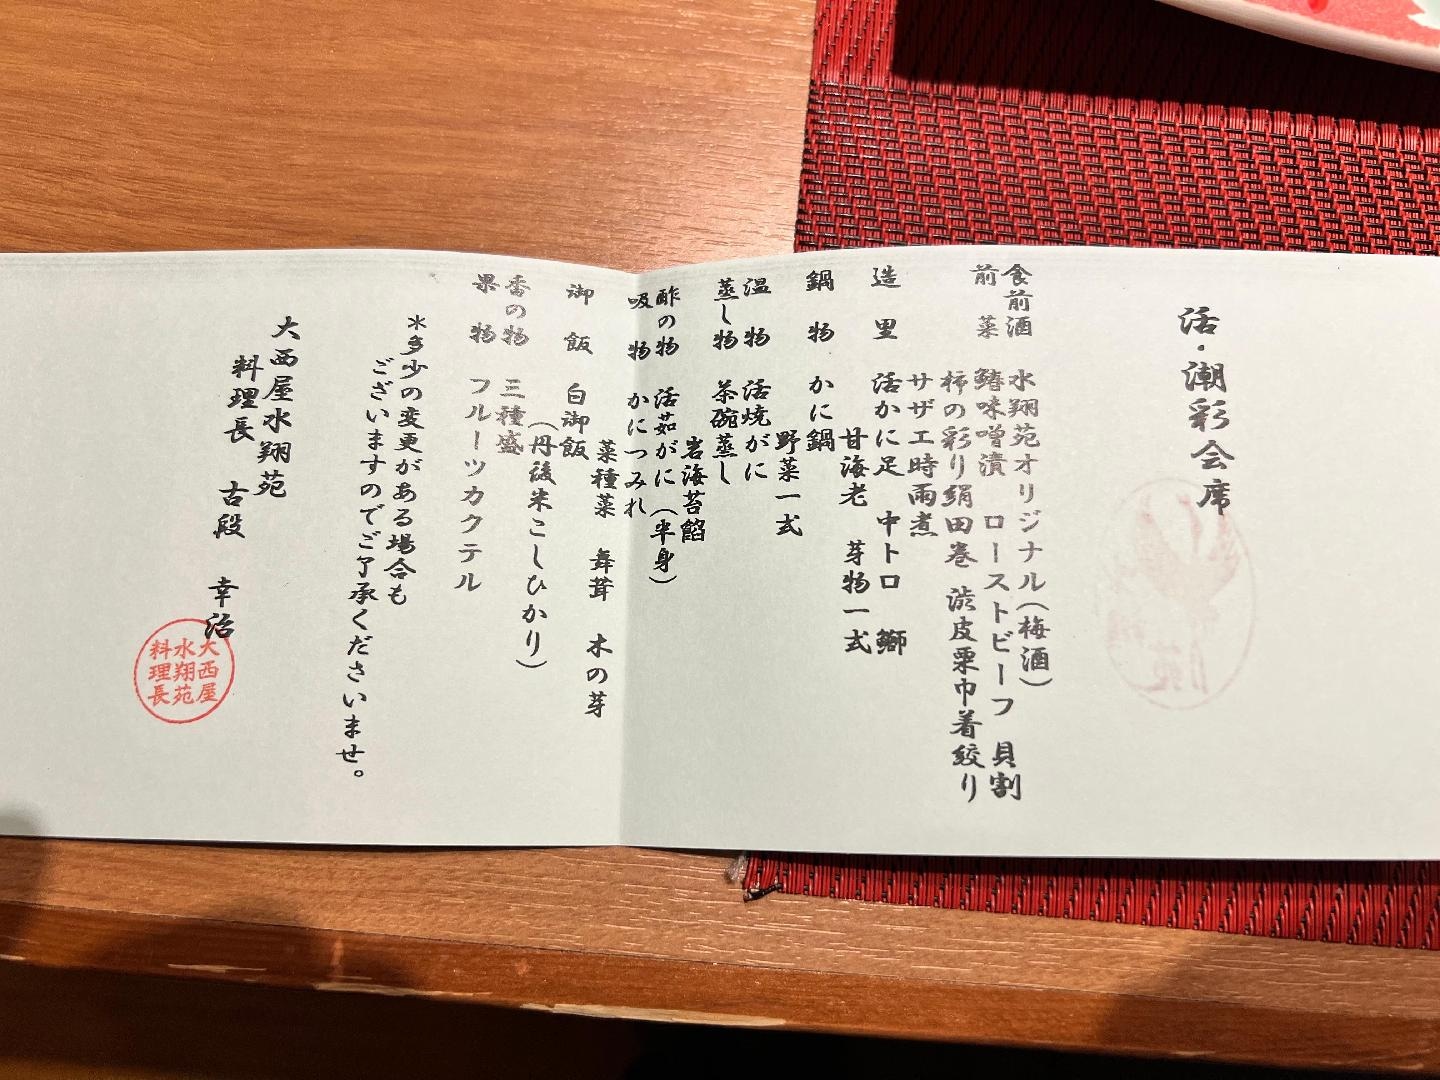 活・潮彩会席
食前酒 水翔苑オリジナル(梅酒)
前菜 鰆味噌漬 ローストビーフ 貝割
柿の彩り絹田巻 渋皮栗巾着絞り
サザエ時雨煮
造里 活かに足 中トロ 鰤
甘海老 芽物一式
鍋物 かに鍋
野菜一式
温物 活焼がに
蒸し物 茶碗蒸し
岩海苔餡
酢の物 活茹がに(半身)
吸物 かにつみれ
菜種菜 舞茸 木の芽
御飯 白御飯
(丹後米こしひかり)
香の物 三種盛
果物 フルーツカクテル
*多少の変更がある場合も
ございますのでご了承くださいませ。
大西屋水翔苑
料理長 古段 幸治
大西屋
水翔苑
料理長